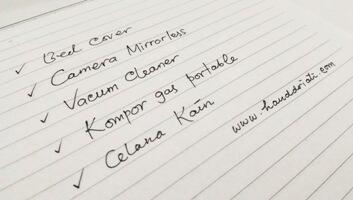 ✓ Bed cover
✓ Camera Mirrorless
✓ Vacum Cleaner
✓ Kompor gas portable
✓ Celana Kain
www.handdriati.com